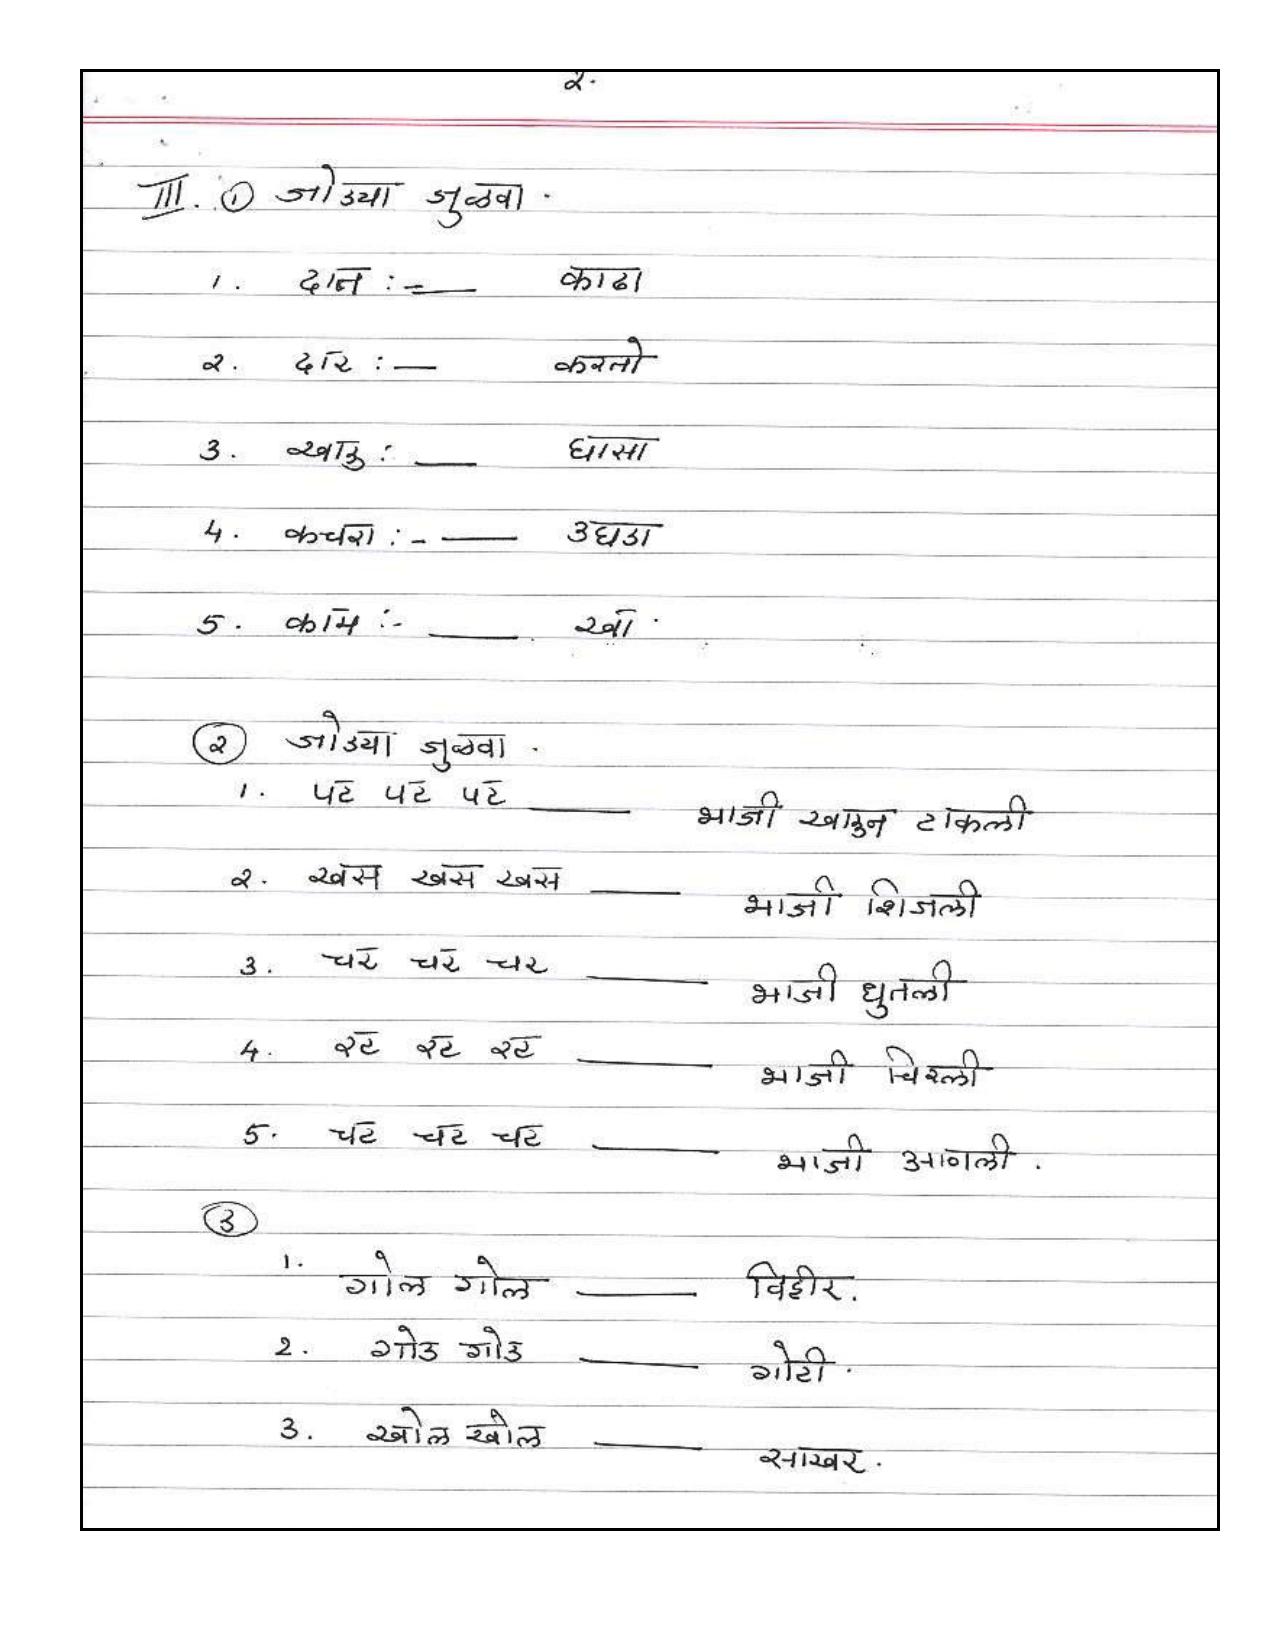 २.
III. ① जोड्या जुळवा.
१. दात :- ___ काढा
२. दार :— करतो
3. खाऊ : ___ घासा
4. कचरा :- ___ उघडा
5. काम :- ___ खा.
② जोड्या जुळवा.
१. पट पट पट ___ भाजी खाऊन टाकली
२. खस खस खस ___ भाजी शिजली
3. चर चर चर ___ भाजी धुतली
4. रट रट रट ___ भाजी चिरली
5. चट चट चट ___ भाजी आणली.
③
1. गोल गोल ___ विहीर.
2. गोड गोड ___ गोटी.
3. खोल खोल ___ साखर.